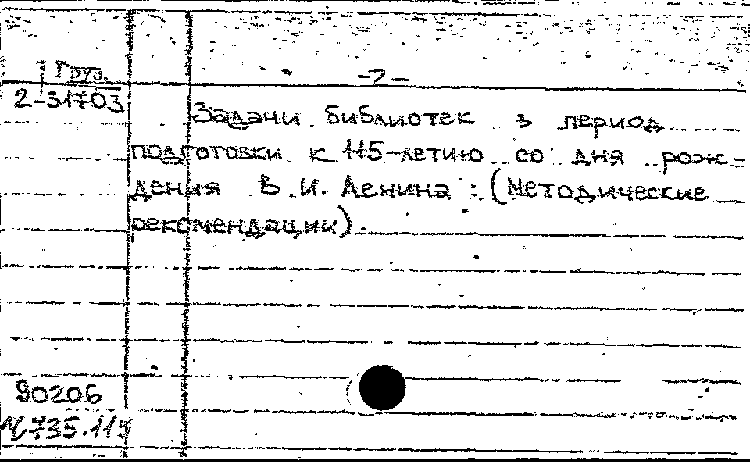 Груз.
-2-
2-31703
Задачи библиотек в период
подготовки к 115-летию со дня рож-
дения В.И. Ленина : (Методические
рекомендации).
90206
735.11